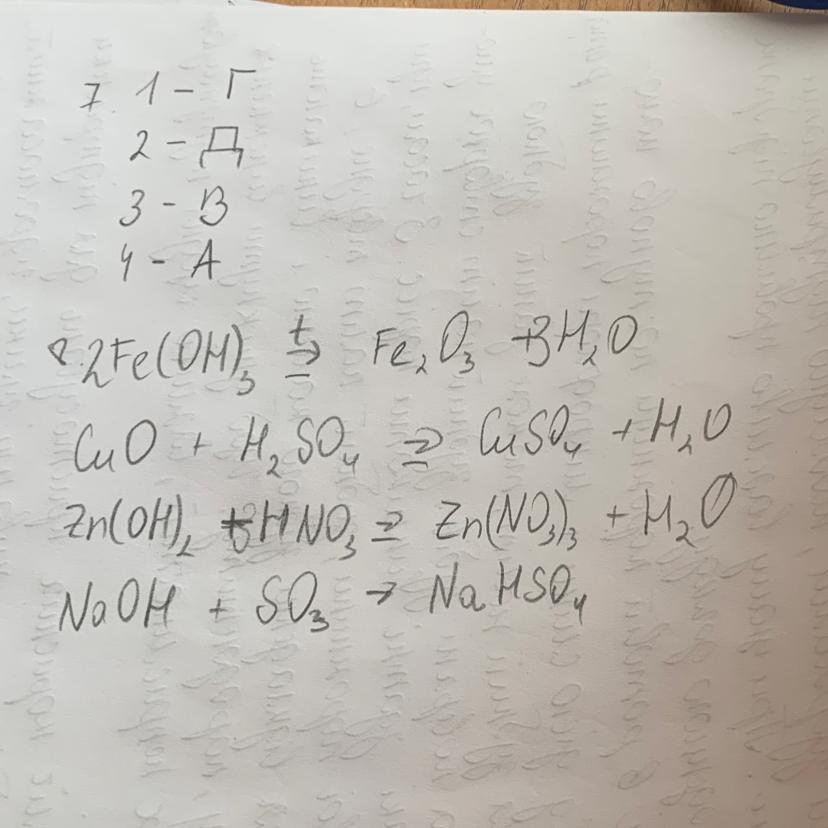 7 1 - Г
2 - Д
3 - В
4 - А
8. 2Fe(OH)₃ t⇒ Fe₂O₃ + 3H₂O
CuO + H₂SO₄ ⇒ CuSO₄ + H₂O
Zn(OH)₂ + 3HNO₃ ⇒ Zn(NO₃)₃ + H₂O
NaOH + SO₃ → NaHSO₄